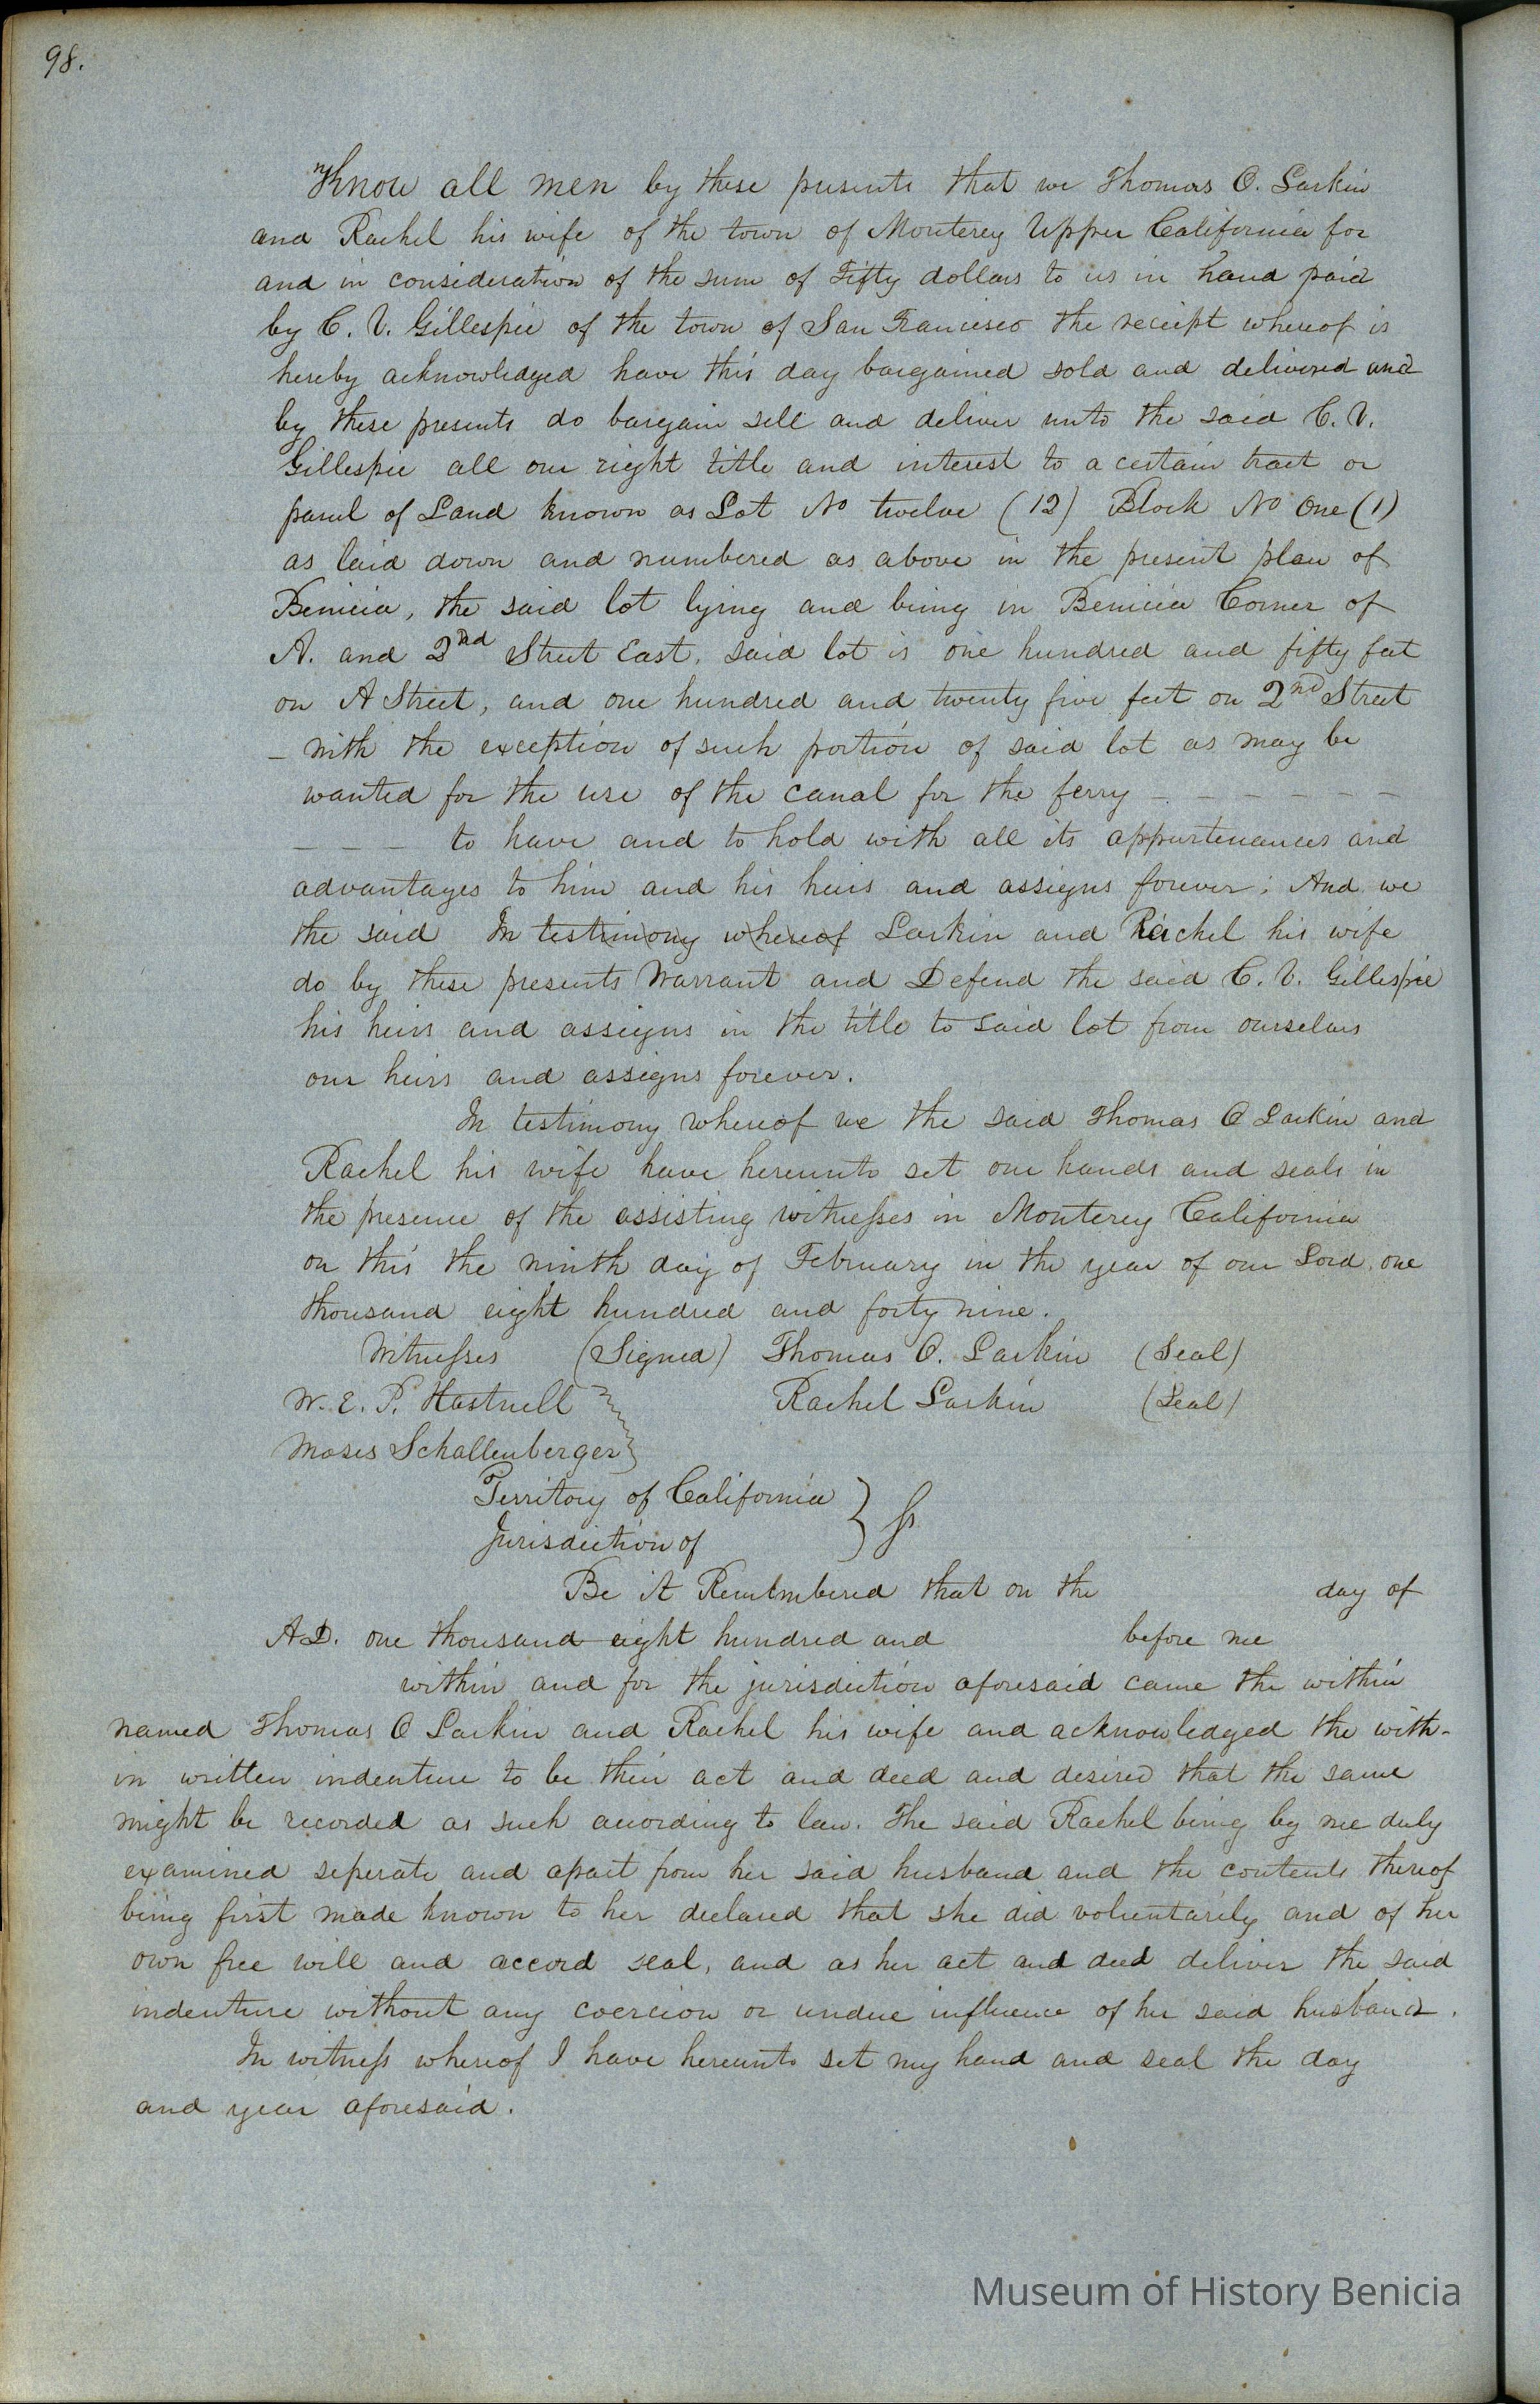 98.
Know all men by these presents that we Thomas O. Larkin
and Rachel his wife of the town of Monterey Upper California for
and in consideration of the sum of Fifty dollars to us in hand paid
by C. V. Gillespie of the town of San Francisco the receipt whereof is
hereby acknowledged have this day bargained sold and delivered and
by these presents do bargain sell and deliver unto the said C. V.
Gillespie all our right title and interest to a certain tract or
parcel of Land known as Lot No twelve (12) Block No One (1)
as laid down and numbered as above in the present plan of
Benicia, the said lot lying and being in Benicia Corner of
A. and 2nd Street East. said lot is one hundred and fifty feet
on A Street, and one hundred and twenty five feet on 2nd Street
– with the exception of such portion of said lot as may be
wanted for the use of the canal for the ferry – – – – – –
– – – to have and to hold with all its appurtenances and
advantages to him and his heirs and assigns forever; And we
the said In testimony whereof Larkin and Rachel his wife
do by these presents Warrant and Defend the said C. V. Gillespie
his heirs and assigns in the title to said lot from ourselves
our heirs and assigns forever.
In testimony whereof we the said Thomas O Larkin and
Rachel his wife have hereunto set our hands and seals in
the presence of the assisting witnesses in Monterey California
on this the ninth day of February in the year of our Lord one
thousand eight hundred and forty nine.
Witnesses (Signed) Thomas O. Larkin (Seal)
W. E. P. Hartnell } Rachel Larkin (Seal)
Moses Schallenberger }
Territory of California } ss
Jurisdiction of
Be it Remembered that on the day of
A.D. one thousand eight hundred and before me
within and for the jurisdiction aforesaid came the within
named Thomas O Larkin and Rachel his wife and acknowledged the with-
in written indenture to be their act and deed and desired that the same
might be recorded as such according to law. The said Rachel being by me duly
examined seperate and apart from her said husband and the contents thereof
being first made known to her declared that she did voluntarily and of her
own free will and accord seal, and as her act and deed deliver the said
indenture without any coercion or undue influence of her said husband.
In witness whereof I have hereunto set my hand and seal the day
and year aforesaid.
Museum of History Benicia